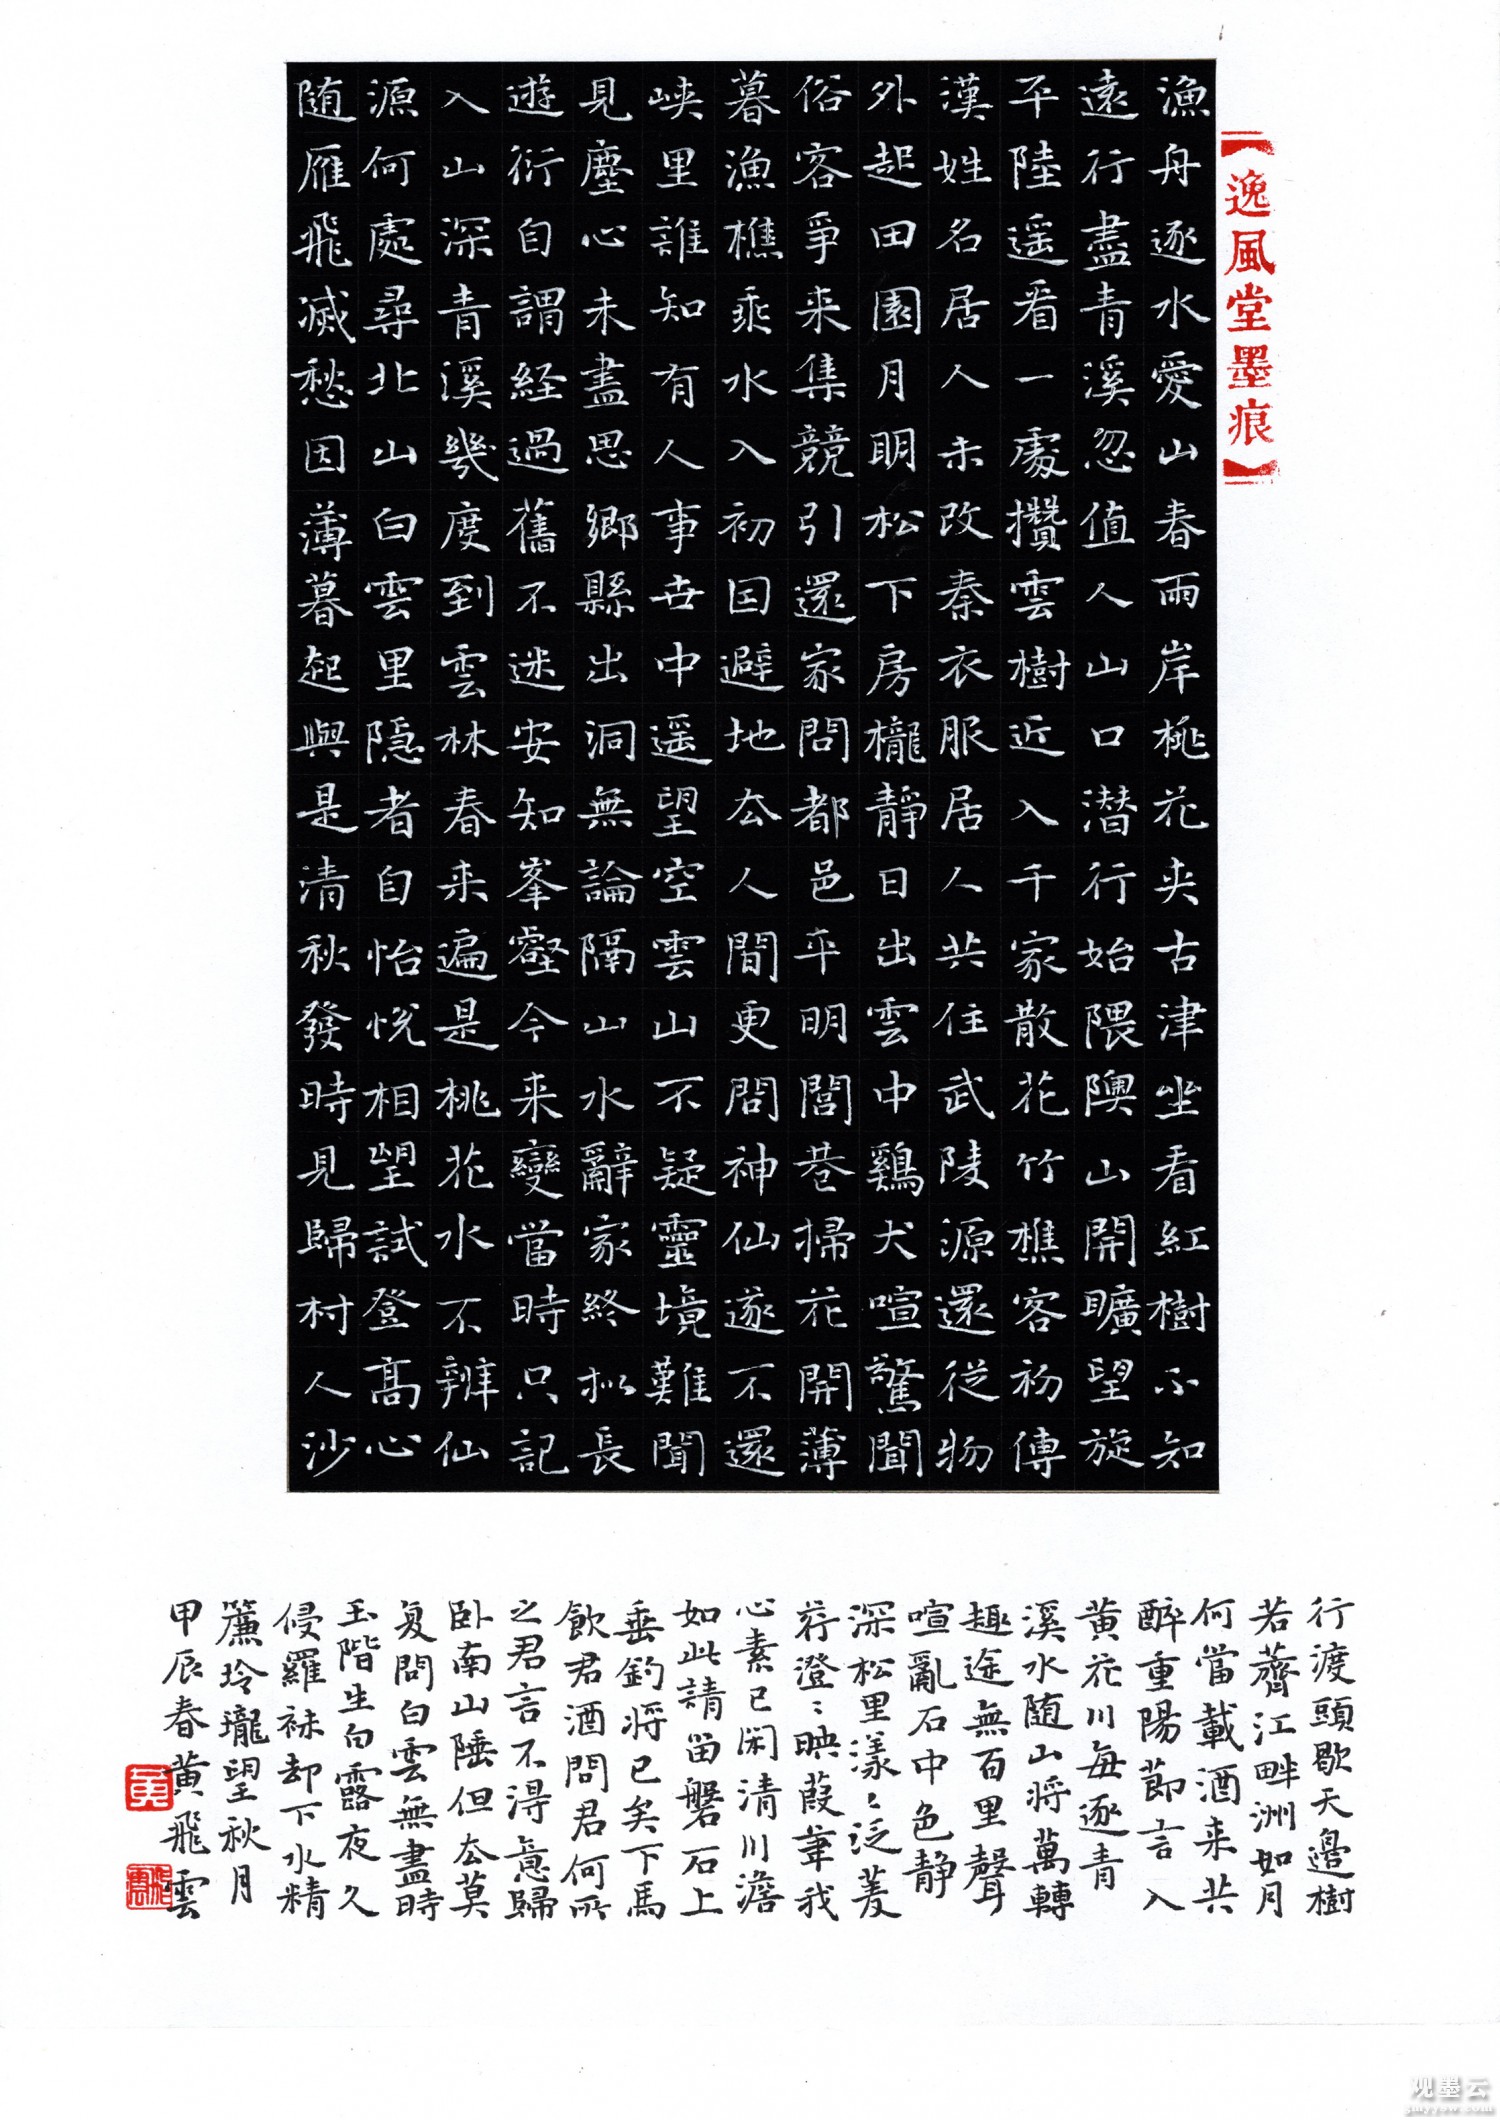 【逸風堂墨痕】
漁舟逐水愛山春雨岸桃花夾古津坐看紅樹不知
遠行盡青溪忽值人山口潜行始隈隩山開曠望旋
平陸遥看一處攢雲樹近入千家散花竹樵客初傳
漢姓名居人未改秦衣服居人共住武陵源還從物
外起田園月明松下房櫳静日出雲中鷄犬喧驚聞
俗客爭来集競引還家問都邑平明閭巷掃花開薄
暮漁樵乘水入初因避地去人間更問神仙遂不還
峡里誰知有人事世中遥望空雲山不疑靈境難聞
見塵心未盡思鄉縣出洞無論隔山水辭家終擬長
遊衍自謂経過舊不迷安知峯壑今来變當時只記
入山深青溪幾度到雲林春来遍是桃花水不辨仙
源何處尋北山白雲里隐者自怡悦相望試登高心
随雁飛滅愁因薄暮起與是清秋發時見歸村人沙
行渡頭歇天邉樹
若薺江畔洲如月
何當載酒来共
醉重陽莭言入
黄花川每逐青
溪水随山将萬轉
趣途無百里聲
喧亂石中色静
深松里漾〻泛菱
荇澄〻映葭葦我
心素已闲清川澹
如此請留磐石上
垂釣将已矣下馬
飲君酒問君何所
之君言不得意歸
卧南山陲但去莫
复問白雲無盡時
玉階生白露夜久
侵羅袜却下水精
簾玲瓏望秋月
甲辰春黄飛雲
观墨云
gmyyow.com